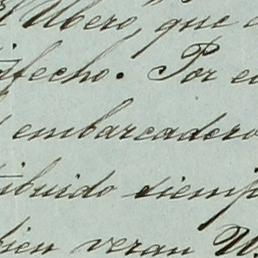 Ubero, que
fecho. Por e
embarcadero
tibuido siemp
bien veran U